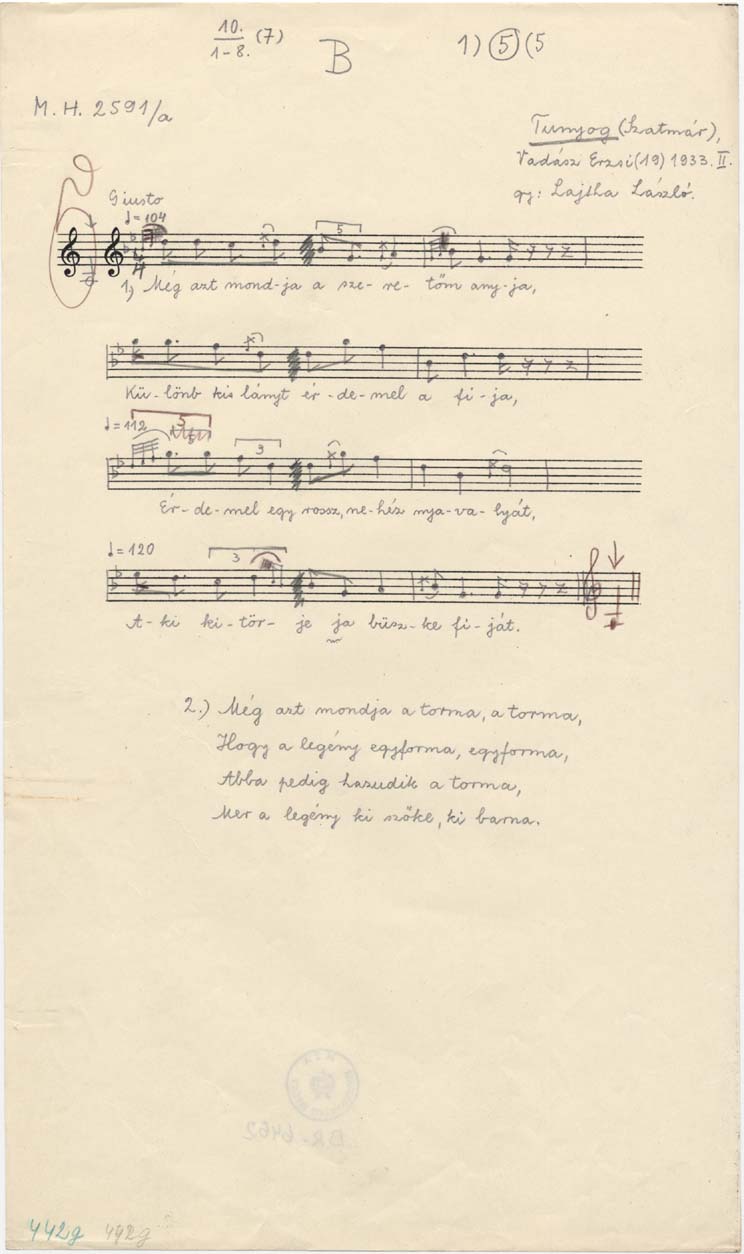 10. (7)
1-8.
B
1) 5 (5
M. H. 2591/a
Tunyog (Szatmár),
Vadász Erzsi (19) 1933. II.
gy: Lajtha László.
Giusto
♩= 104
5
1) Még azt mond-ja a sze-re-töm any-ja,
Kü-lönb kis lányt ér-de-mel a fi-ja,
♩= 112
5
3
Ér-de-mel egy rossz, ne-héz nya-va-lyát,
♩= 120
3
A-ki ki-tör-je ja büsz-ke fi-ját.
2.) Még azt mondja a torma, a torma,
Hogy a legény egyforma, egyforma,
Abba pedig hazudik a torma,
Mer a legény ki szőke, ki barna.
BR-6462
442g 442g